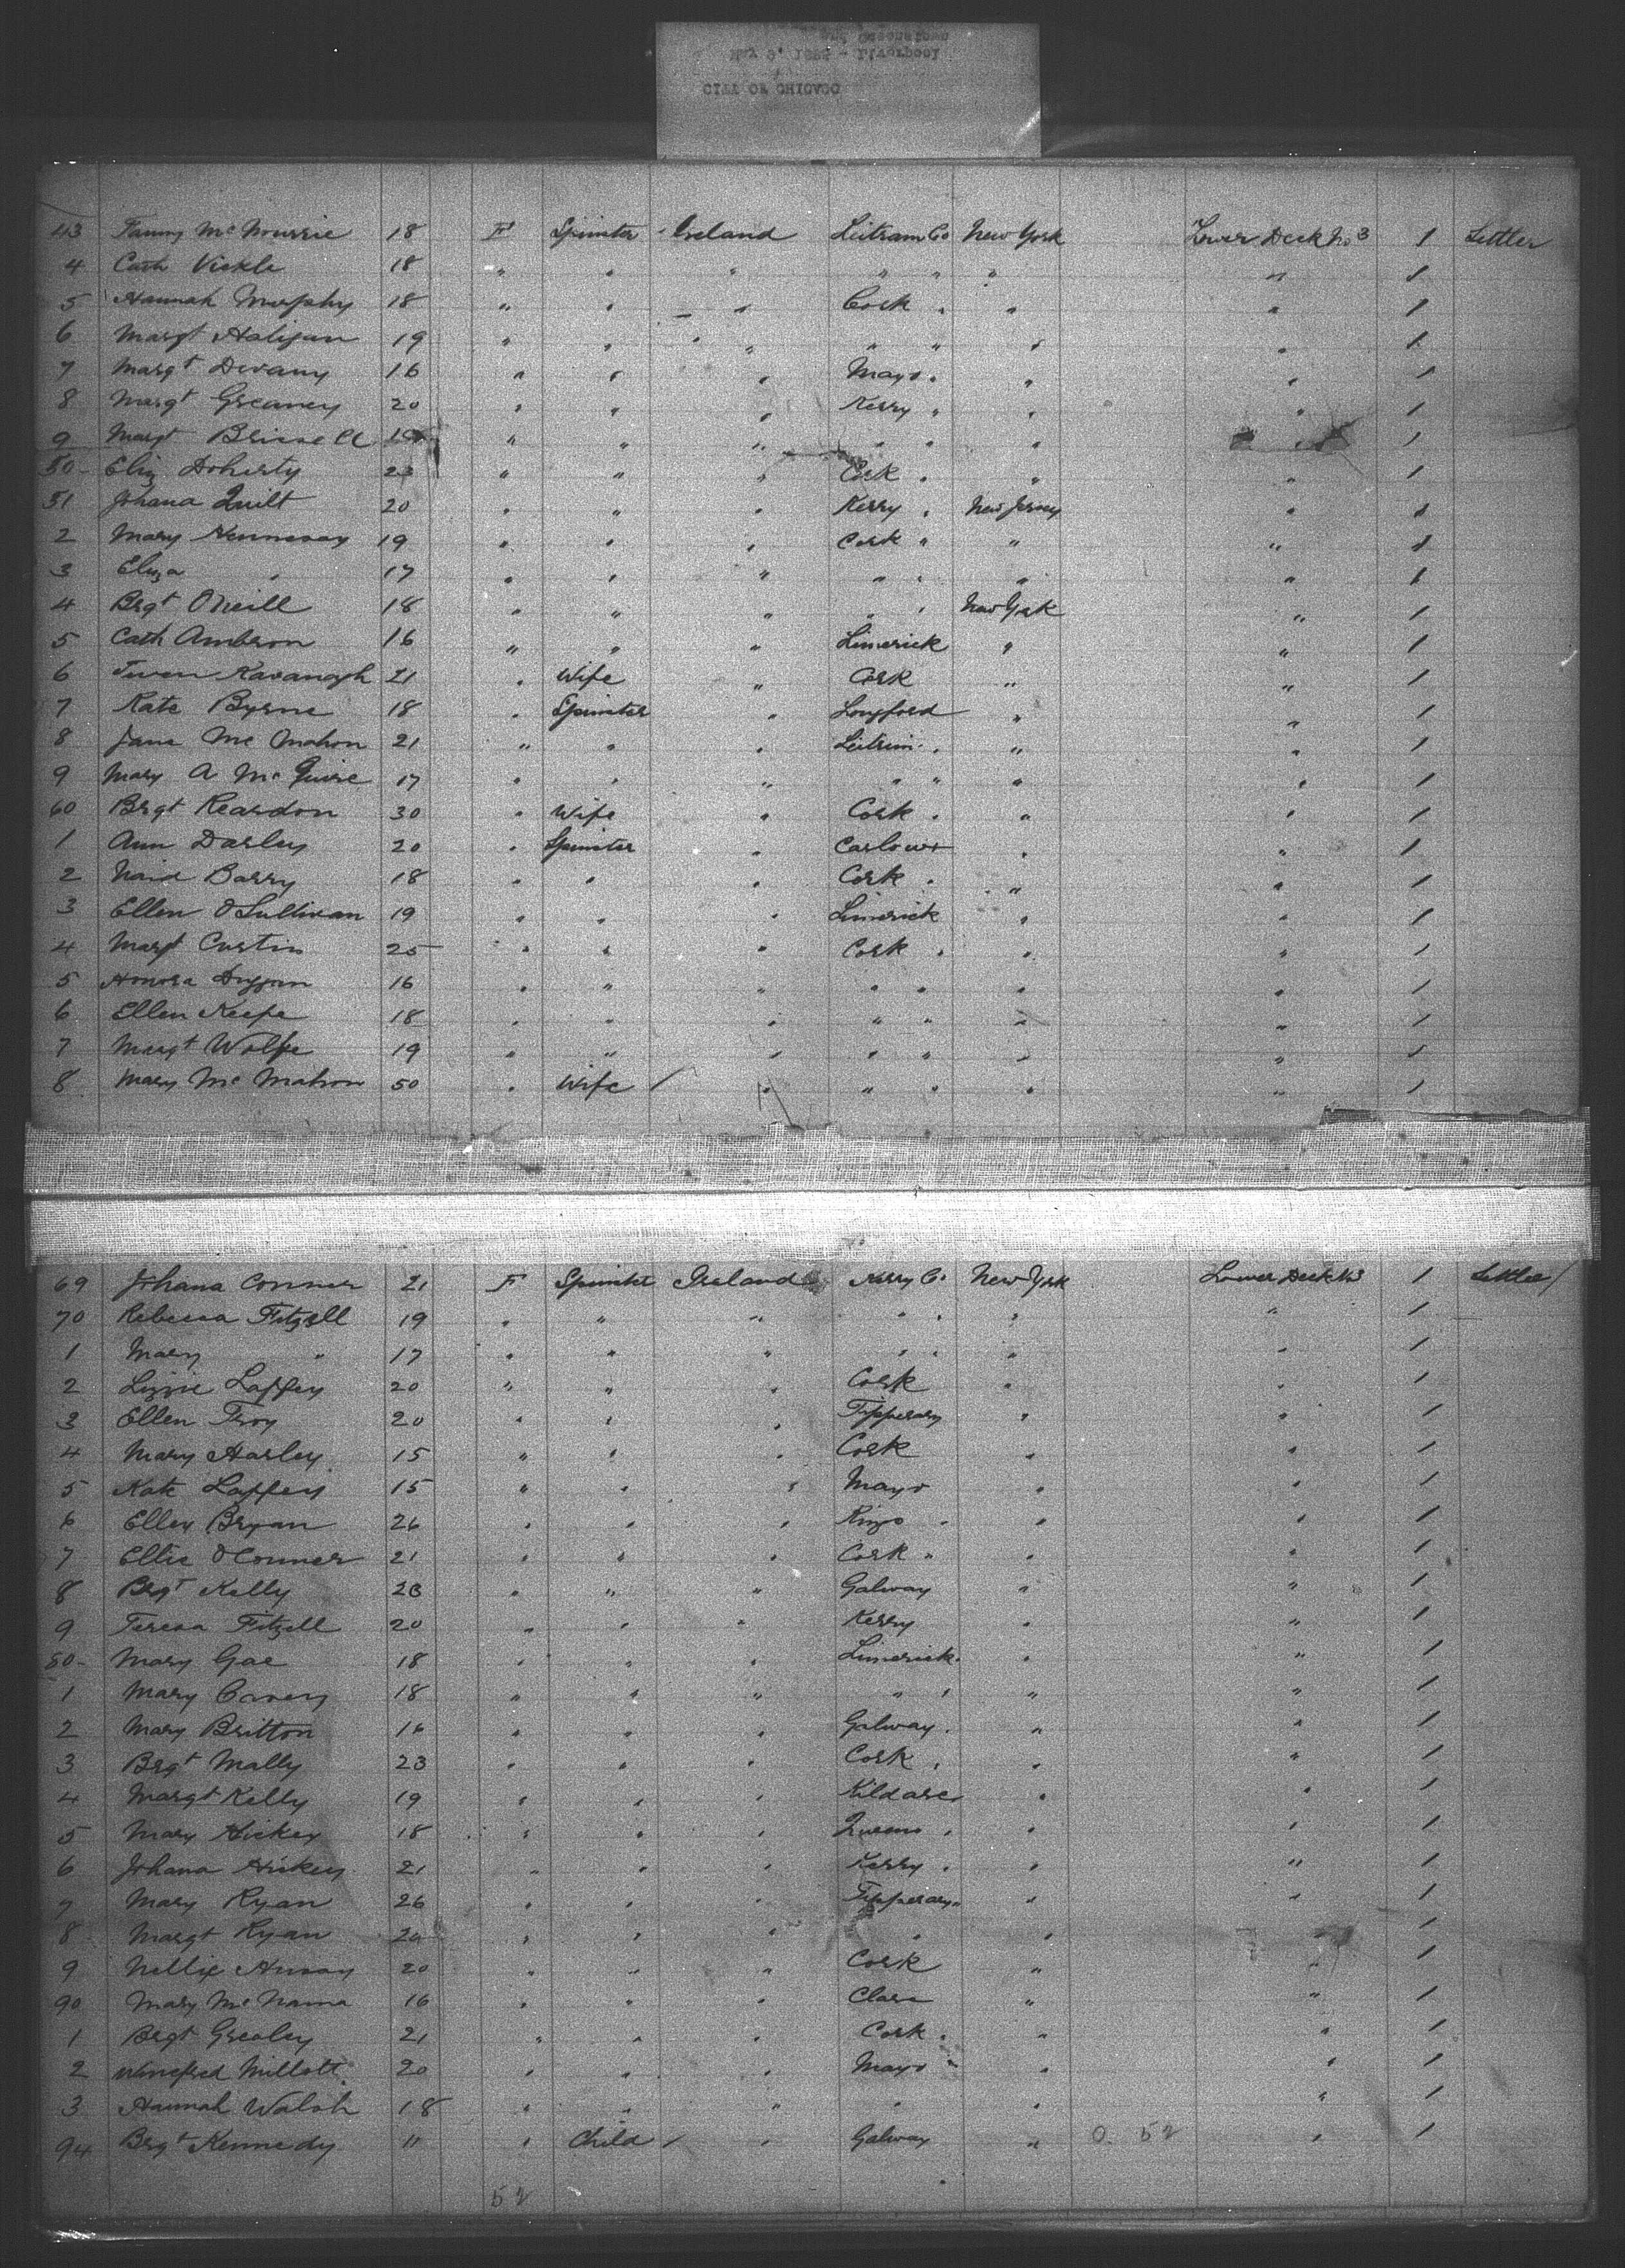 43 Fanny McMourrie 18 F Spinster Ireland Leitram Co New York Lower Deck No 3 1 Settler
4 Cath Vickle 18 " " " " " " " 1
5 Hannah Murphy 18 " " " Cork " " " 1
6 Margt Haligan 19 " " " " " " " 1
7 Margt Devany 16 " " " Mayo " " " 1
8 Margt Greaney 20 " " " Kerry " " " 1
9 Margt " " " " " " " 1
50 Eliz Doherty 23 " " " Cork " " " 1
51 Johana Quilt 20 " " " Kerry " New Jersey " 1
2 Mary Hennessay 19 " " " Cork " " " 1
3 Eliza " 17 " " " " " " " 1
4 Brgt ONeill 18 " " " " " New York " 1
5 Cath Ambron 16 " " " Limerick " " 1
6 Kavanagh 21 " Wife " Cork " " 1
7 Kate Byrne 18 " Spinster " Longford " " 1
8 Jane McMahon 21 " " " Leitrim " " " 1
9 Mary A McGuire 17 " " " " " " " 1
60 Brgt Reardon 30 " Wife " Cork " " " 1
1 Ann Darley 20 " Spinster " Carlow " " 1
2 Barry 18 " " " Cork " " " 1
3 Ellen OSullivan 19 " " " Limerick " " 1
4 Margt Curtin 25 " " " Cork " " " 1
5 Honora Duggan 16 " " " " " " " 1
6 Ellen Keefe 18 " " " " " " " 1
7 Margt Wolfe 19 " " " " " " " 1
8 Mary McMahon 50 " Wife " " " " " 1
69 Johana Connor 21 F Spinster Ireland Kerry Co New York Lower Deck No 3 1 Settler
70 Rebecca Fitzell 19 " " " " " " " 1
1 Mary " 17 " " " " " " " 1
2 Lizzie Laffey 20 " " " Cork " " 1
3 Ellen Troy 20 " " " Tipperary " " 1
4 Mary Harley 15 " " " Cork " " 1
5 Kate Laffey 15 " " " Mayo " " 1
6 Ellen Bryan 26 " " " Kings " " " 1
7 Ellie OConner 21 " " " Cork " " " 1
8 Brgt Kelly 23 " " " Galway " " 1
9 Teresa Fitzell 20 " " " Kerry " " 1
80 Mary Gae 18 " " " Limerick " " " 1
1 Mary 18 " " " " " " " 1
2 Mary Britton 16 " " " Galway " " " 1
3 Brgt Mally 23 " " " Cork " " " 1
4 Margt Kelly 19 " " " Kildare " " " 1
5 Mary Hickey 18 " " " Queens " " " 1
6 Johana Hickey 21 " " " Kerry " " " 1
7 Mary Ryan 26 " " " Tipperary " " " 1
8 Margt Ryan 20 " " " " " 1
9 Nellie 20 " " " Cork " " 1
90 Mary McNama 16 " " " Clare " " 1
1 Brgt Grealey 21 " " " Cork " " " 1
2 Winefred Millott 20 " " " Mayo " " " 1
3 Hannah Walsh 18 " " " " " " 1
94 Brgt Kennedy 11 " Child " Galway " 0. 52 " 1
52